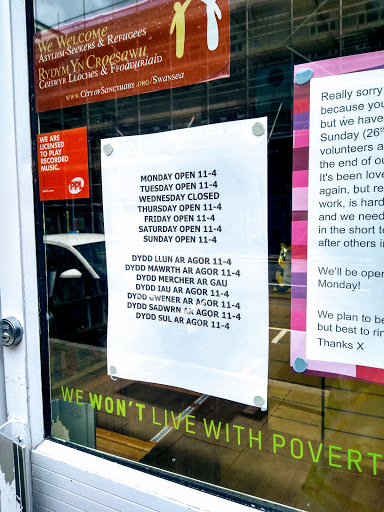 We Welcome
Asylum-Seekers & Refugees
Rydym Yn Croesawu
Ceiswyr Lloches & Ffoaduriaid
www.CityofSanctuary.org/Swansea
WE ARE
LICENSED
TO PLAY
RECORDED
MUSIC.
PPL
MONDAY OPEN 11-4
TUESDAY OPEN 11-4
WEDNESDAY CLOSED
THURSDAY OPEN 11-4
FRIDAY OPEN 11-4
SATURDAY OPEN 11-4
SUNDAY OPEN 11-4
DYDD LLUN AR AGOR 11-4
DYDD MAWRTH AR AGOR 11-4
DYDD MERCHER AR GAU
DYDD IAU AR AGOR 11-4
DYDD GWENER AR AGOR 11-4
DYDD SADWRN AR AGOR 11-4
DYDD SUL AR AGOR 11-4
Really sorry
because you
but we have
Sunday (26th
volunteers a
the end of ou
It's been love
again, but re
work, is hard
and we need
in the short te
after others in
We'll be open
Monday!
We plan to be
but best to rin
Thanks X
WE WON'T LIVE WITH POVERT